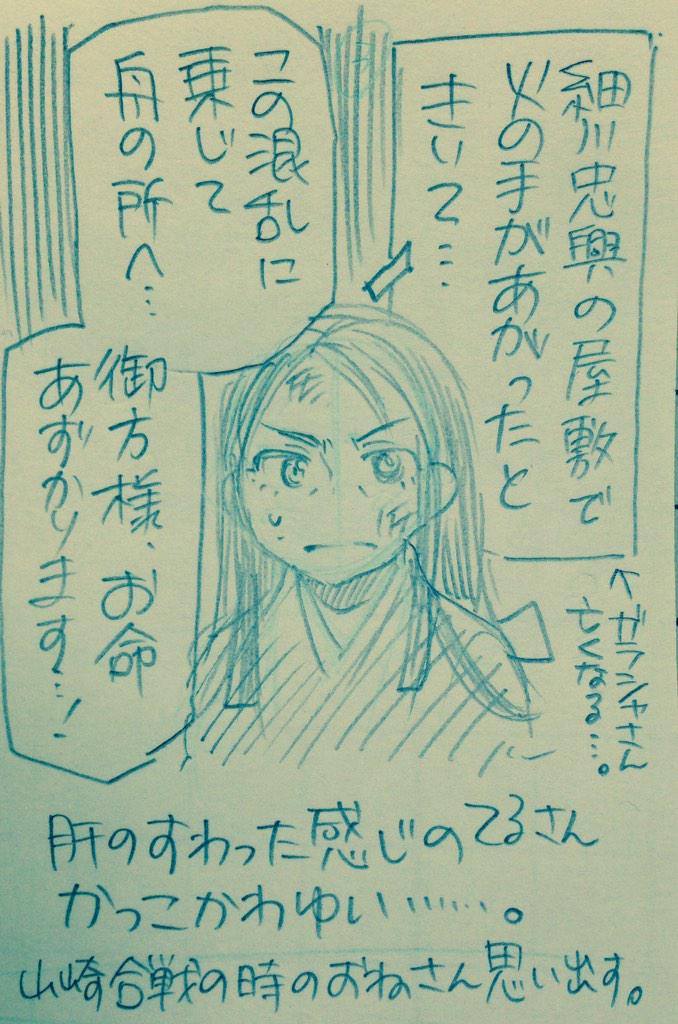 細川忠興の屋敷で
火の手があがったと
きいて…
↑ガラシャさん
亡くなる…。
この混乱に
乗じて
舟の所へ…
御方様、お命
あずかります…!
肝のすわった感じのてるさん
かっこかわゆい……。
山崎合戦の時のおねさん思い出す。